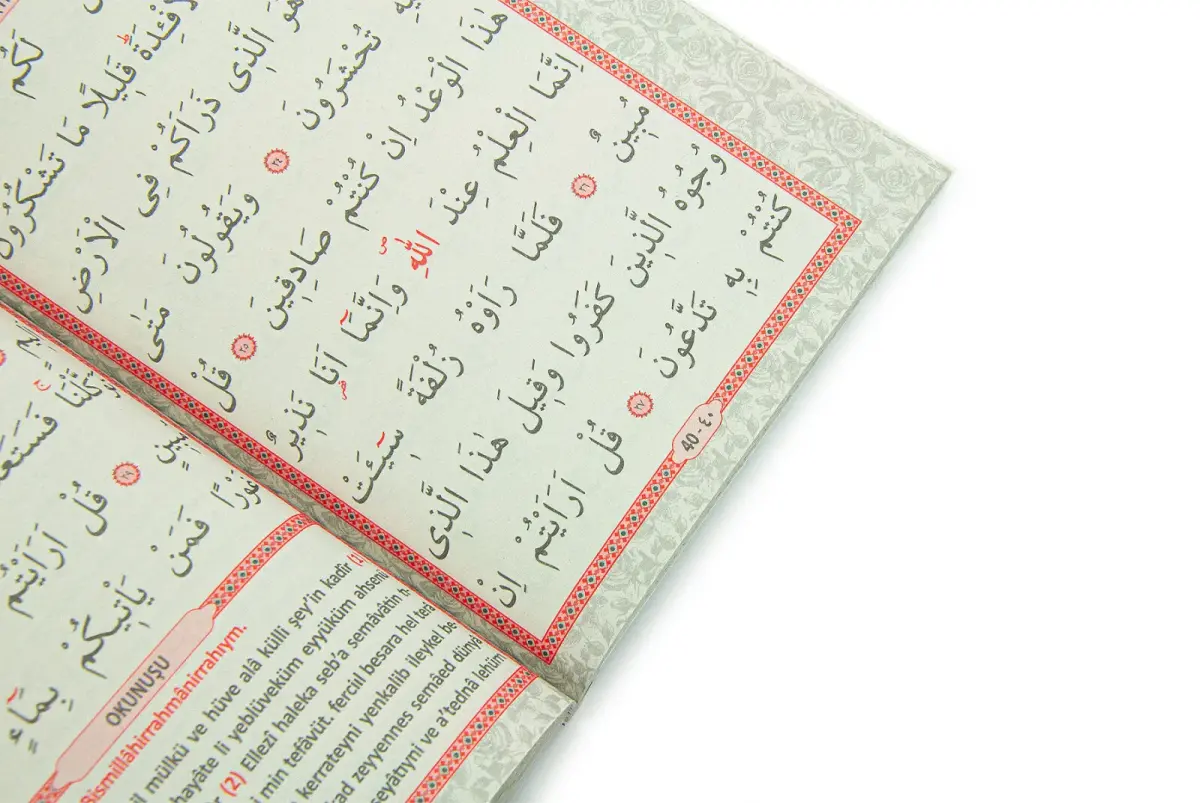 لَكُمُ
قَلِيلًا مَا تَشْكُرُونَ
الَّذِى ذَرَاَكُمْ فِى الْاَرْضِ
تُحْشَرُونَ ٢٤ وَيَقُولُونَ مَتَى
هٰذَا الْوَعْدُ اِنْ كُنْتُمْ صَادِقِينَ ٢٥ قُلْ
اِنَّمَا الْعِلْمُ عِنْدَ اللّٰهِ وَاِنَّمَٓا اَنَا نَذِيرٌ
مُبِينٌ ٢٦ فَلَمَّا رَاَوْهُ زُلْفَةً سِٓيـَٔتْ
وُجُوهُ الَّذِينَ كَفَرُوا وَقِيلَ هٰذَا الَّذِى
كُنْتُمْ بِهِ تَدَّعُونَ ٢٧ قُلْ اَرَاَيْتُمْ اِنْ
40 - ٤٠
٢٩ قُلْ اَرَاَيْتُمْ
فَمَنْ يَأْتِيكُمْ بِمَٓاءٍ
OKUNUŞU
Bismillâhirrahmânirrahıym.
mülkü ve hüve alâ külli şey'in kadîr (1)
hayâte li yeblüveküm eyyüküm ahsenü
(2) Ellezî haleka seb'a semâvâtin
min tefâvüt. ferciıl besara hel
kerrateyni yenkalib ileykel
zeyyennes semâed dünyâ
ve a'tednâ lehüm